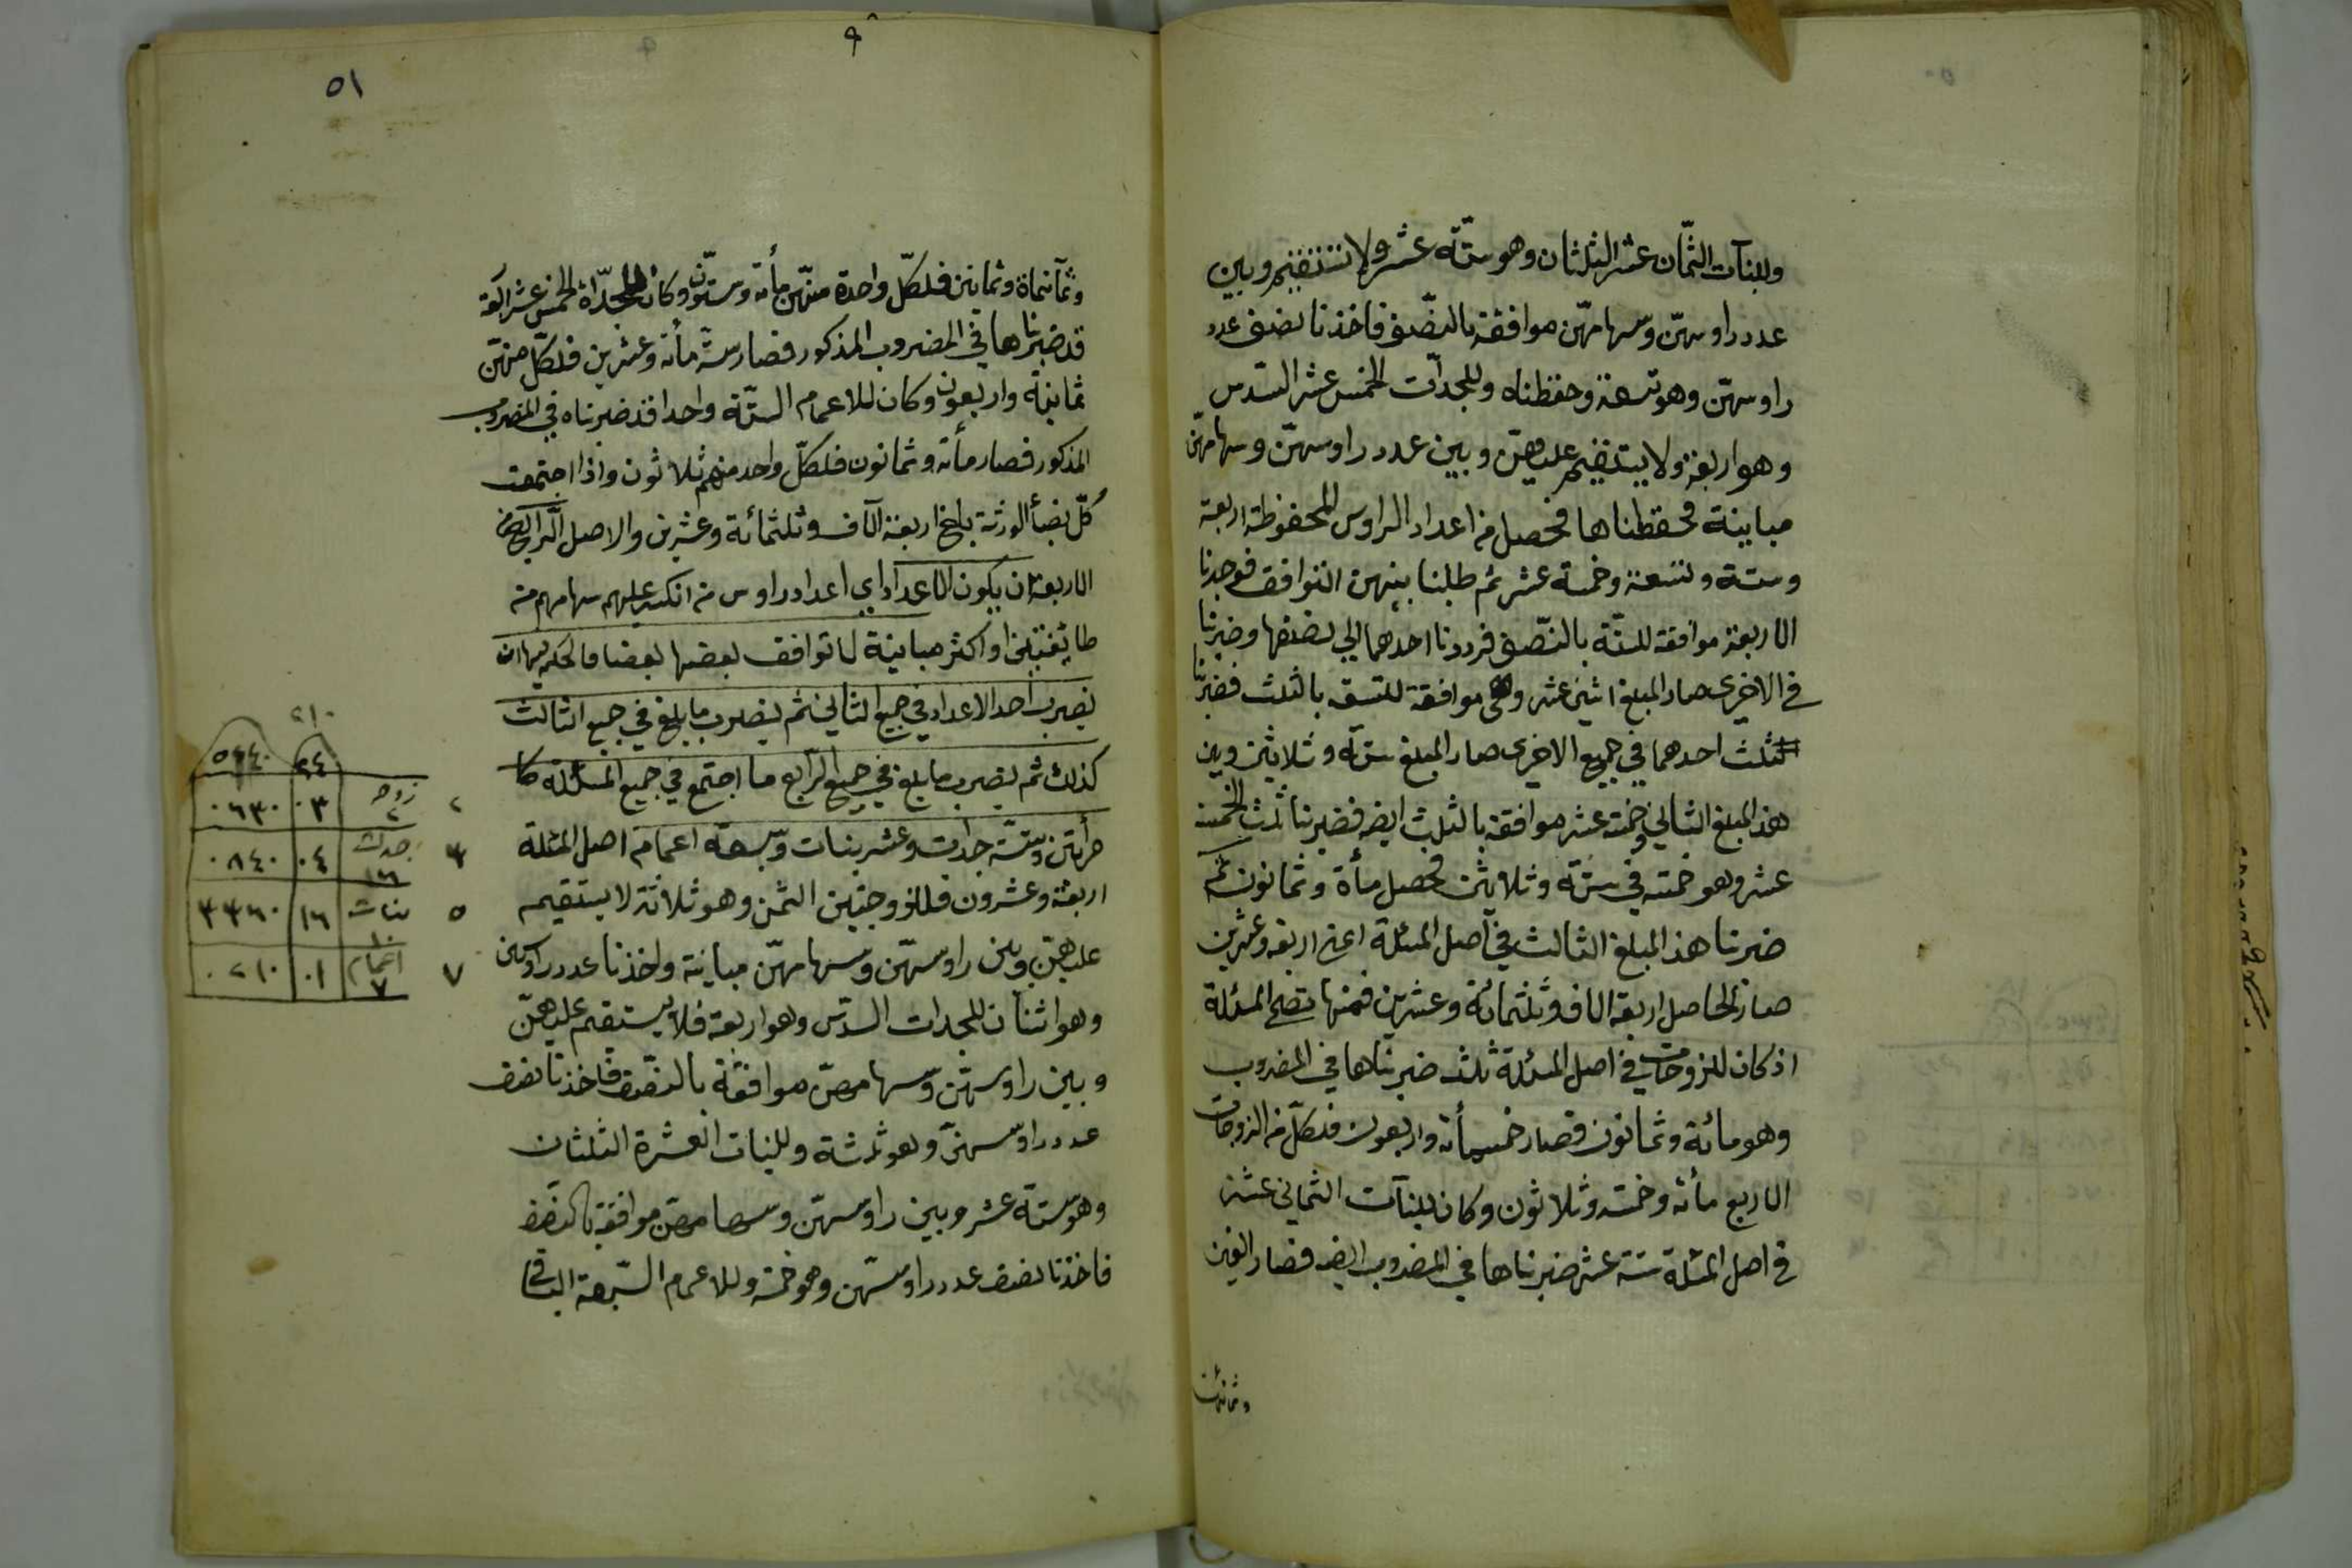 وللبنات الثمان عشر الثلثان وهو ستة عشر ولا تستقيم وبين
عدد راوسهن وسهامهن موافقة بالنصف فاخذنا نصف عدد
راوسهن وهو تسعة وحفظناه وللجدات الخمس عشر السدس
وهو اربعة ولا يستقيم عليهن وبين عدد راوسهن وسهامهن
مباينة فحفظناها فحصل من اعداد الراوس المحفوظة اربعة
وستة وتسعة وخمسة عشر ثم طلبنا بينهن التوافق فوجدنا
الاربعة موافقة للستة بالنصف فرددنا احدهما الي نصفها وضربنا
في الاخرى صار المبلغ اثني عشر وهي موافقة للتسق بالثلث فضربنا
ثلث احدهما في جميع الاخرى صار المبلغ ستة وثلاثين وبين
هذ المبلغ الثاني وخمسة عشر موافقة بالثلث ايضه فضربنا ثلث الخمسة
عشر وهو خمسه في ستة وثلاثين فحصل مأة وثمانون ثم
ضربنا هذ المبلغ الثالث في اصل المسئلة اعني اربعة وعشرين
صار الحاصل اربعة الاف وثلثمائة وعشرين فمنها تصح المسئلة
اذ كان للزوجات في اصل المسئلة ثلث ضربناها في المضروب
وهو مائة وثمانون فصار خمسمأة واربعون فلكل من الزوجات
الاربع مأة وخمسة وثلاثون وكان للبنات الثماني عشر
في اصل المسئلة ستة عشر ضربناها في المضروب ايضه فصار الفين
وثمانمائة
٥١
٩
وثمآنمأة وثمانين فلكل واحدة منهن مأة وستون وكان للجداة الخمس عشر اربعة
قد ضربناها في المضروب المذكور فصار سبع مأة وعشرين فلكل منهن
ثمانية واربعون وكان للاعمام الستة واحدا قد ضربناه في المضروب
المذكور فصار مأة وثمانون فلكل واحد منهم ثلاثون واذا اجتمعت
كل نصبأ الورثة بلغ اربعة الآف وثلثمائة وعشرين والاصل الرابع من
الاربعة ان يكون الاعداد اي اعداد راوس من انكسر عليهم سهامهم من
طايفتين او اكثر مباينة لا توافق بعضها بعضا فالحكم فيها ان
يضرب احد الاعداد في جميع الثاني ثم يضرب ما بلغ في جميع الثالث
كذلك ثم يضرب ما بلغ في جميع الرابع ما اجتمع في جميع المسئلة كا
مرأتين وستة جدات وعشر بنات وسبعة اعمام اصل المسئلة
اربعة وعشرون فللزوجتين الثمن وهو ثلاثة لا يستقيم
عليهن وبين راوسهن وسهامهن مباينة واخذنا عدد راوسهن
وهو اثنان للجدات السدس وهو اربعة فلا يستقيم عليهن
وبين راوسهن وسهامهن موافقة بالنصف فاخذنا نصف
عدد راوسهن وهو ثلثة وللبنات العشرة الثلثان
وهو ستة عشر وبين راوسهن وسهامهن موافقة بالنصف
فاخذنا نصف عدد راوسهن وهو خمسة وللاعمام السبعة الباقي
٢١٠
٢٤ ٥٠٤٠
٢ زوجه ٢ ٠٣ ٠٦٣٠
٣ جدات ٠٤ ٠٨٤٠
٥ بنات ١٠ ١٦ ٣٣٦٠
٧ اعمام ٧ ٠١ ٠٢١٠